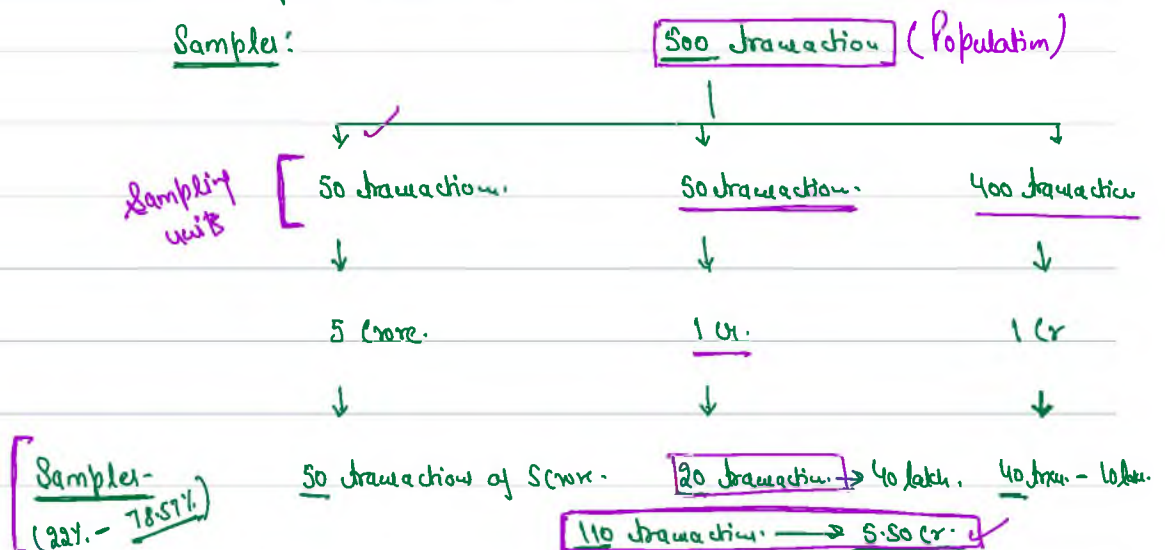 Samples:
500 transaction (Population)
Sampling units
50 transaction. 50 transaction. 400 transaction
5 Crore. 1 Cr. 1 Cr
Samples- 50 transactions of 5 Crore. 20 transaction. → 40 lakh. 40 tran. - 10 lakh.
(22%. - 78.57%) 110 transaction. → 5.50 Cr.